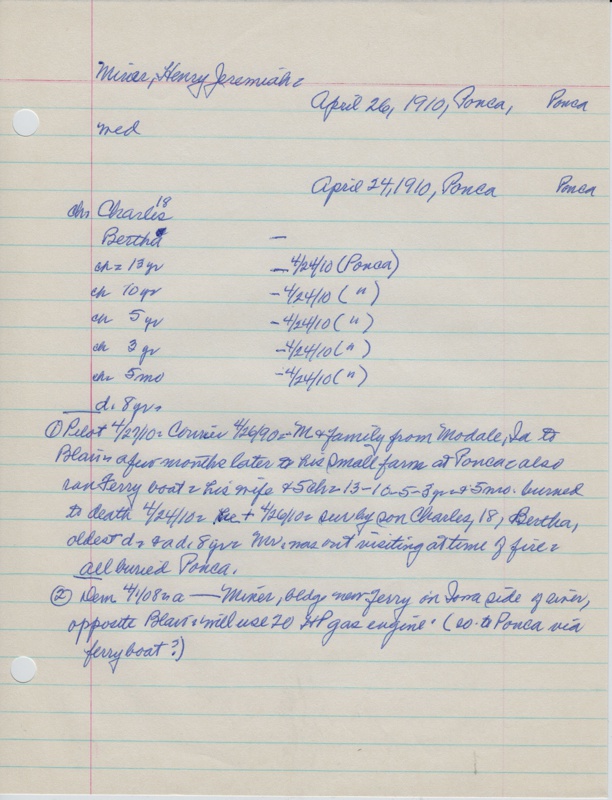 Miner, Henry Jeremiah =
April 26, 1910, Ponca, Ponca
med
April 24, 1910, Ponca Ponca
ch Charles 18
Bertha —
ch = 13 yr — 4/24/10 (Ponca)
ch 10 yr - 4/24/10 ( " )
ch 5 yr - 4/24/10 ( " )
ch 3 yr - 4/24/10 ( " )
ch 5 mo - 4/24/10 ( " )
d. 8 yrs
① Pilot 4/27/10 = Courier 4/26/90 = M & family from Modale, Ia to
Blair = a few months later to his small farm at Ponca = also
ran ferry boat = his wife & 5 ch = 13-10-5-3 yr & 5 mo. burned
to death 4/24/10 = + 4/26/10 = sur by son Charles, 18, Bertha,
oldest d. & a d. 8 yr = Mr. was out visiting at time of fire =
all buried Ponca.
② Dem 4/1/08 = a — Miner, bldg new ferry on Iowa side of river,
opposite Blair = will use 20 HP gas engine. ( to Ponca via
ferryboat ?)